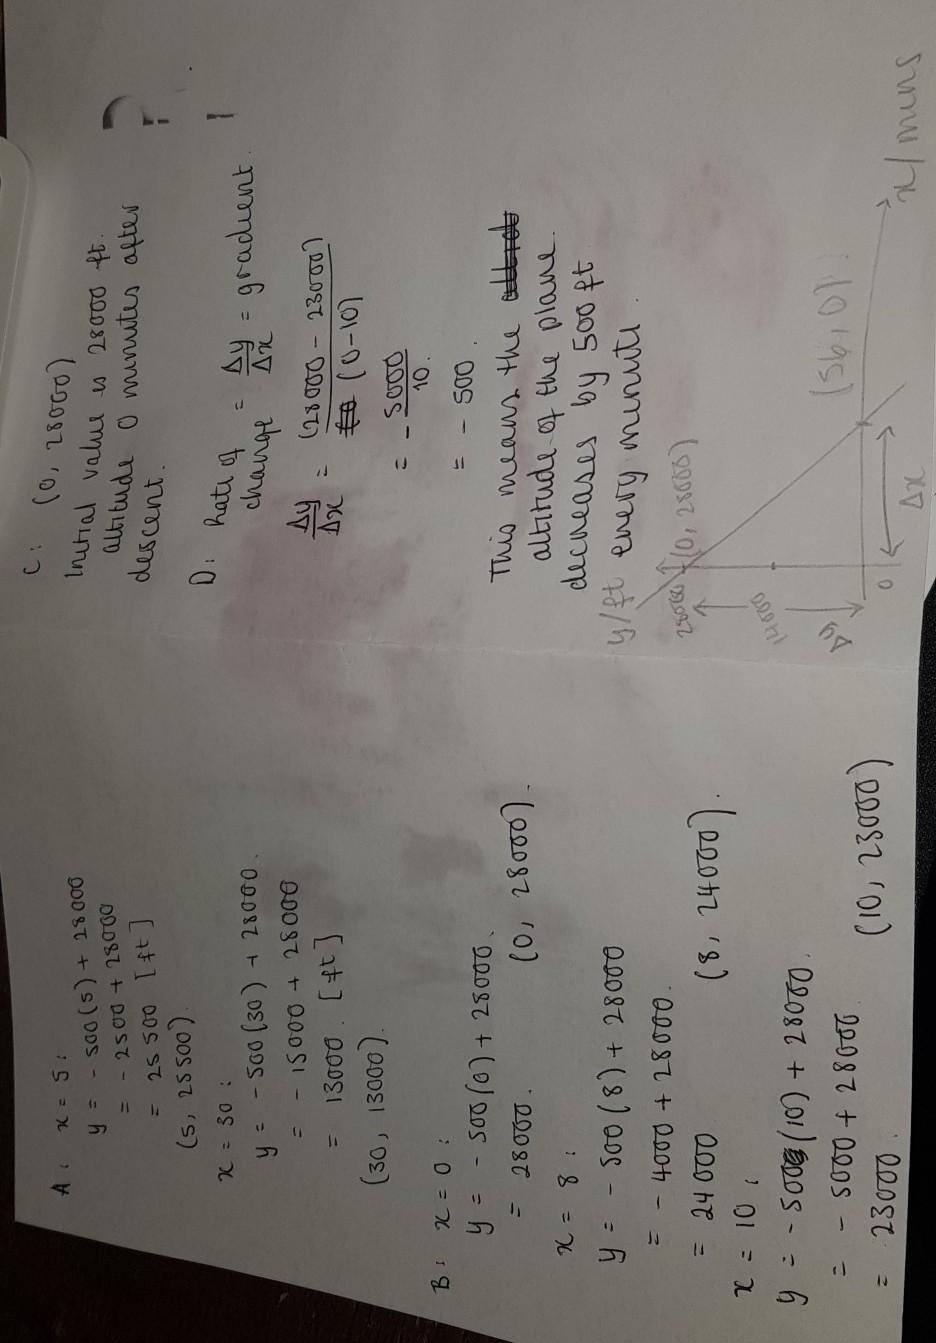 A: x = 5:
y = - 500 (5) + 28000
= - 2500 + 28000
= 25 500 [ft]
(5, 25 500).
x = 30:
y = -500 (30) + 28000.
= - 15000 + 28000
= 13000. [ft]
(30, 13000).
B: x = 0:
y = - 500 (0) + 28000.
= 28000. (0, 28000).
x = 8:
y = - 500 (8) + 28000
= - 4000 + 28000.
= 24 000 (8, 24000).
x = 10:
y = - 500 (10) + 28000.
= - 5000 + 28000
= 23000. (10, 23000)
C: (0, 28000)
Initial value is 28000 ft.
altitude 0 minutes after
descent.
?
D: Rate of change = Δy/Δx = gradient.
Δy/Δx = (28000 - 23000)/(0-10)
= - 5000/10.
= - 500.
This means the
altitude of the plane
decreases by 500 ft
every minute.
y/ft
28000
(0, 28000)
14000
Δy
0
Δx
(56, 0)
x/mins